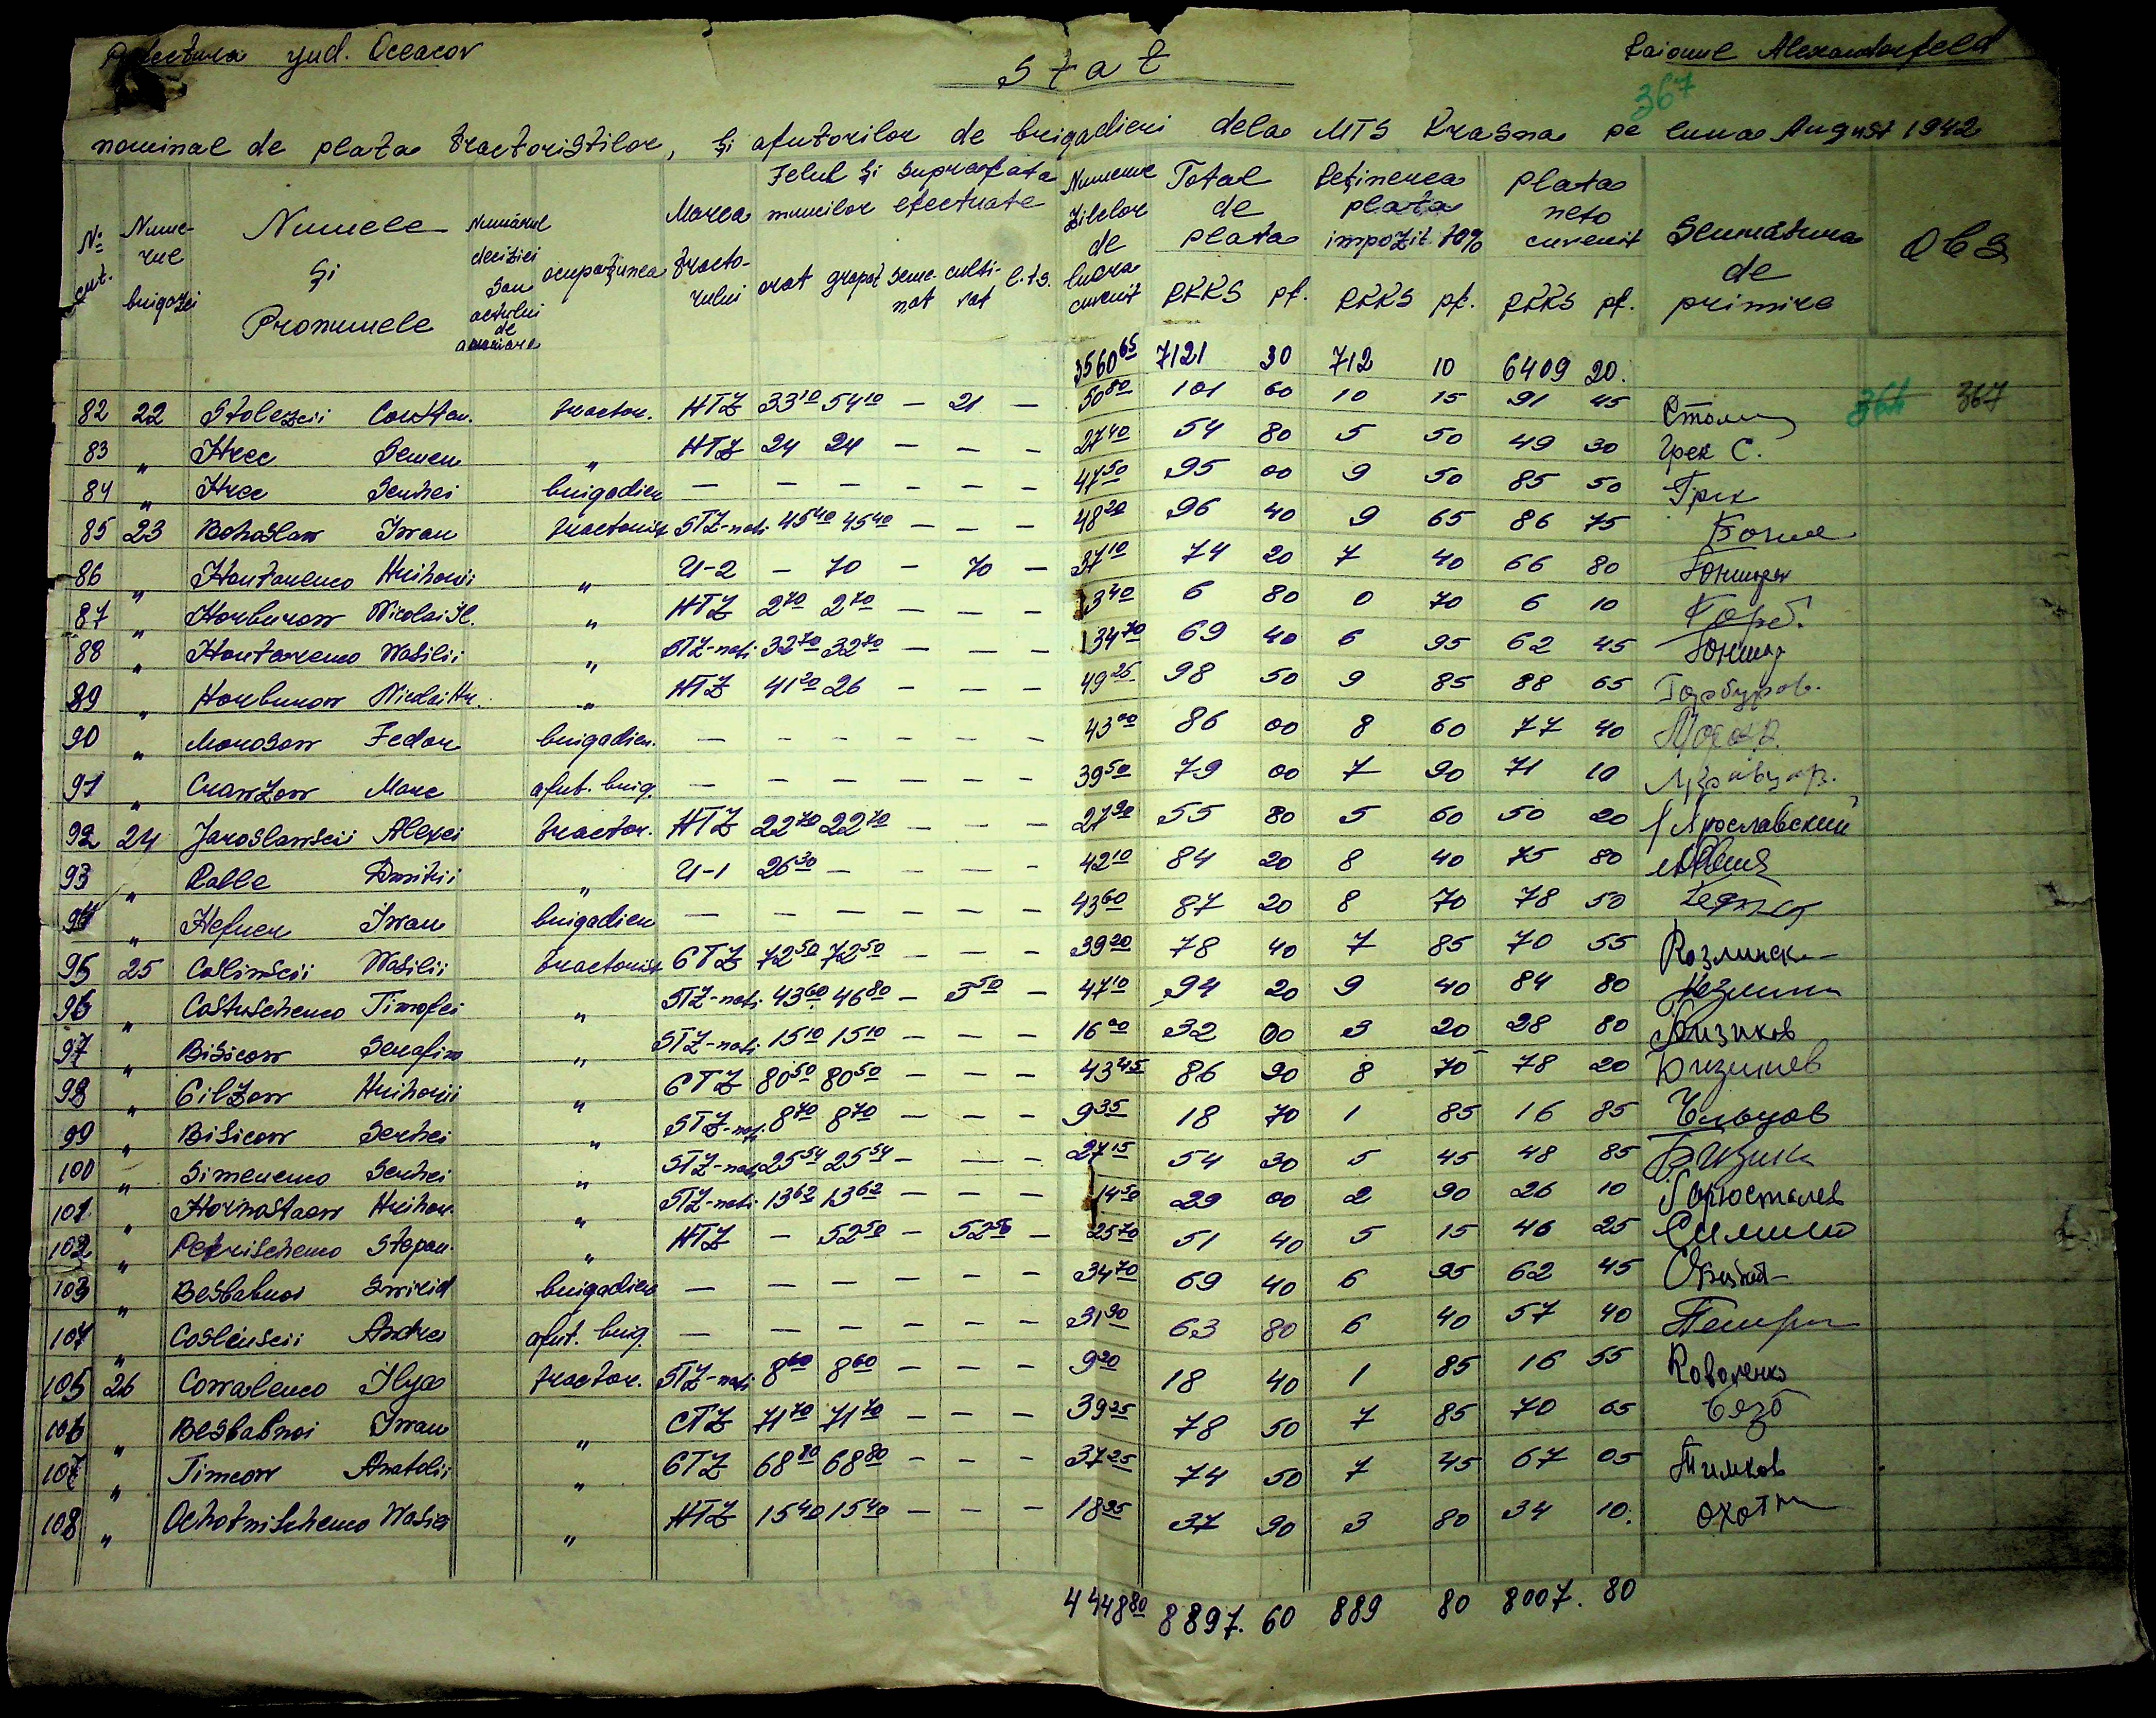 Prefectura jud. Oceacov
Raionul Alexanderfeld
Stat
367
nominal de plata tractoristilor, și ajutorilor de brigadieri dela MTS Krasna pe luna August 1942
№ crt. | Numerul brigazei | Numele și Pronumele | Numărul deciziei sau actului de angajare | ocupațiunea | Marca tractorului | Felul și suprafata muncilor efectuate: arat, grapat, semenat, cultivat, l.t.s. | Numerul zilelor de lucru cuvenit | Total de plata RKKS pf. | Reținerea plata impozit 10% RKKS pf. | plata neto cuvenit RKKS pf. | Semnătura de primire | Obs
3560 65 7121 30 712 10 6409 20.
82 22 Stolezcii Constan. tractor. HTZ 33 10 54 10 — 21 — 50 80 101 60 10 15 91 45 Столи 367 367
83 " Hrec Semen " HTZ 24 24 — — — 27 40 54 80 5 50 49 30 Грек С.
84 " Hrec Serhei brigadier — — — — — — 47 50 95 00 9 50 85 50 Грек
85 23 Bohoslaw Iwan tractorist STZ-nati 45 40 45 40 — — — 48 20 96 40 9 65 86 75
86 " Hontarenco Hrihorii " U-2 — 70 — 70 — 37 10 74 20 7 40 66 80 Гонтар
87 " Horburow Nicolai Il. " HTZ 2 70 2 70 — — — 3 40 6 80 0 70 6 10 Горб.
88 " Hontarenco Wasilii " STZ-nati 32 70 32 70 — — — 34 70 69 40 6 95 62 45 Гонтар
89 " Horburow Nicolai Hr. " HTZ 41 20 26 — — — 49 25 98 50 9 85 88 65 Горбуров.
90 " Morosow Fedor brigadier. — — — — — — 43 00 86 00 8 60 77 40
91 " Crawzow Marc ajut. brig. — — — — — — 39 50 79 00 7 90 71 10
92 24 Jaroslawscii Alexei tractor. HTZ 22 70 22 70 — — — 27 90 55 80 5 60 50 20 Ярославский
93 " Ralle Dmitrii " U-1 26 30 — — — — 42 10 84 20 8 40 75 80
94 " Hefner Iwan brigadier — — — — — — 43 60 87 20 8 70 78 50
95 25 Coslinscii Wasilii tractorist СTZ 72 50 72 50 — — — 39 20 78 40 7 85 70 55 Козлинск
96 " Costrischenco Timofei " STZ-nati 43 60 46 80 — 3 50 — 47 10 94 20 9 40 84 80
97 " Bisicow Serafim " STZ-nati 15 10 15 10 — — — 16 00 32 00 3 20 28 80 Бизиков
98 " Cilzow Hrihorii " СTZ 80 50 80 50 — — — 43 45 86 90 8 70 78 20
99 " Bisicow Serhei " STZ-nati 8 70 8 70 — — — 9 35 18 70 1 85 16 85 Чильцов
100 " Simenenco Serhei " STZ-nati 25 54 25 54 — — — 27 15 54 30 5 45 48 85 Бизик
101 " Hornostaew Hrihor. " STZ-nati 13 62 13 62 — — — 14 50 29 00 2 90 26 10 Горностаев
102 " Petrischenco Stepan. " HTZ — 52 50 — 52 50 — 25 70 51 40 5 15 46 25
103 " Besbabnoi Swirid brigadier — — — — — — 34 70 69 40 6 95 62 45
104 " Coslinscii Andrei ajut. brig. — — — — — — 31 90 63 80 6 40 57 40
105 26 Cowalenco Ilya tractor. STZ-nati 8 60 8 60 — — — 9 20 18 40 1 85 16 55 Коваленко
106 " Besbabnoi Iwan " СTZ 71 70 71 70 — — — 39 25 78 50 7 85 70 65
107 " Timcow Anatolii " СTZ 68 80 68 80 — — — 37 25 74 50 7 45 67 05 Тимков
108 " Ochotnischenco Wasia " HTZ 15 40 15 40 — — — 18 95 37 90 3 80 34 10. Охотн
4448 80 8897. 60 889 80 8007. 80